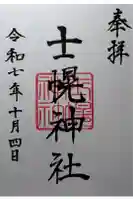 奉拝
士幌神社
令和七年十月四日